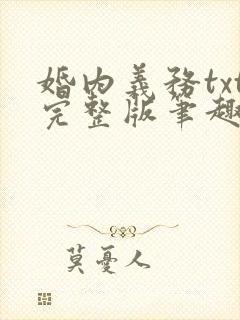 婚内義務txt
完整版筆趣
莫憂人